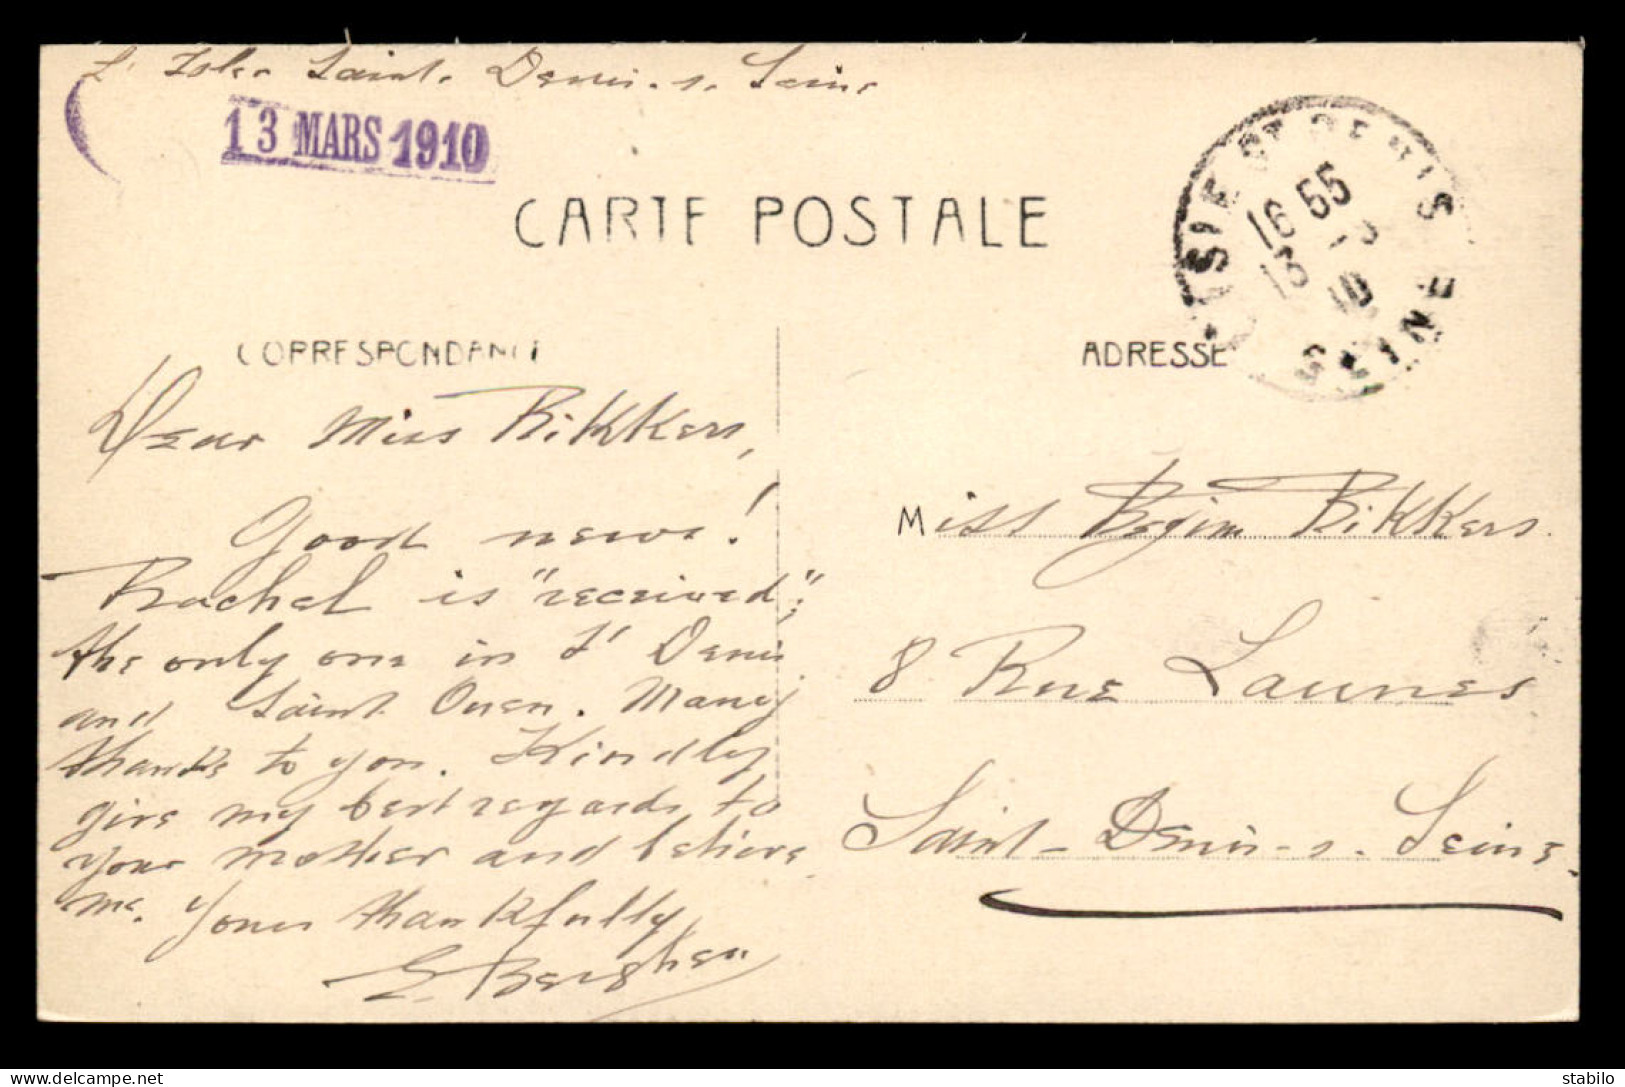 L'Isle Saint-Denis-s. Seine
13 MARS 1910
CARTE POSTALE
L'ISLE ST DENIS
16 55
13 - 3
10
SEINE
CORRESPONDANCE
ADRESSE
Dear Miss Bikkers,
Good news!
Rachel is "received";
the only one in St Denis
and Saint Ouen. Many
thanks to you. Kindly
give my best regards to
your mother and believe
me. Yours thankfully
E.
Miss Bikkers.
8 Rue Launes
Saint-Denis-s. Seine.
www.delcampe.net
stabilo